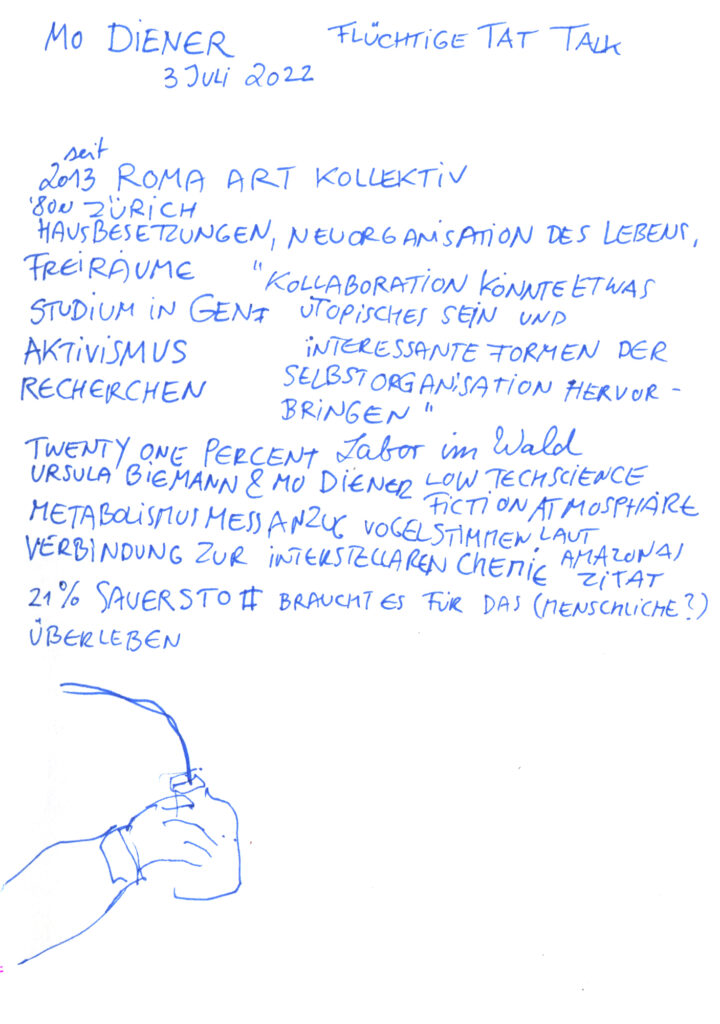 MO DIENER FLÜCHTIGE TAT TALK
3 JULI 2022
seit
2013 ROMA ART KOLLEKTIV
'80ER ZÜRICH
HAUSBESETZUNGEN, NEUORGANISATION DES LEBENS,
FREIRÄUME "KOLLABORATION KÖNNTE ETWAS
STUDIUM IN GENF UTOPISCHES SEIN UND
AKTIVISMUS INTERESSANTE FORMEN DER
RECHERCHEN SELBSTORGANISATION HERVOR-
BRINGEN"
TWENTY ONE PERCENT Labor im Wald
URSULA BIEMANN & MO DIENER LOW TECH SCIENCE
FICTION ATMOSPHÄRE
METABOLISMUS MESSANZUG VOGELSTIMMEN LAUT
VERBINDUNG ZUR INTERSTELLAREN CHEMIE AMAZONAS
ZITAT
21% SAUERSTOFF BRAUCHT ES FÜR DAS (MENSCHLICHE?)
ÜBERLEBEN